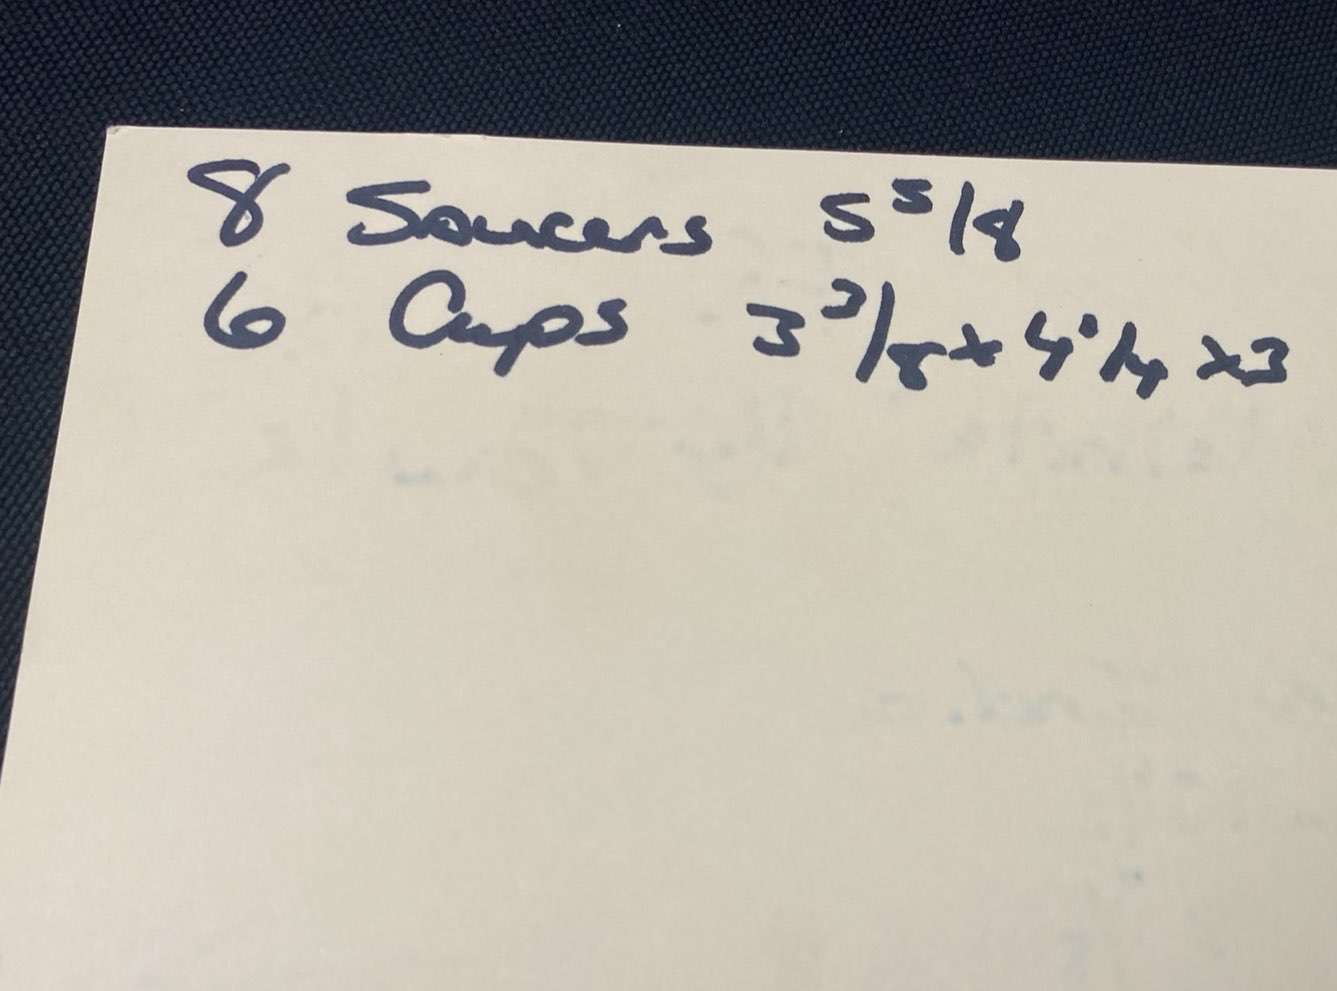 8 Saucers 5 5/8
6 Cups 3 3/8 x 4 1/4 x 3